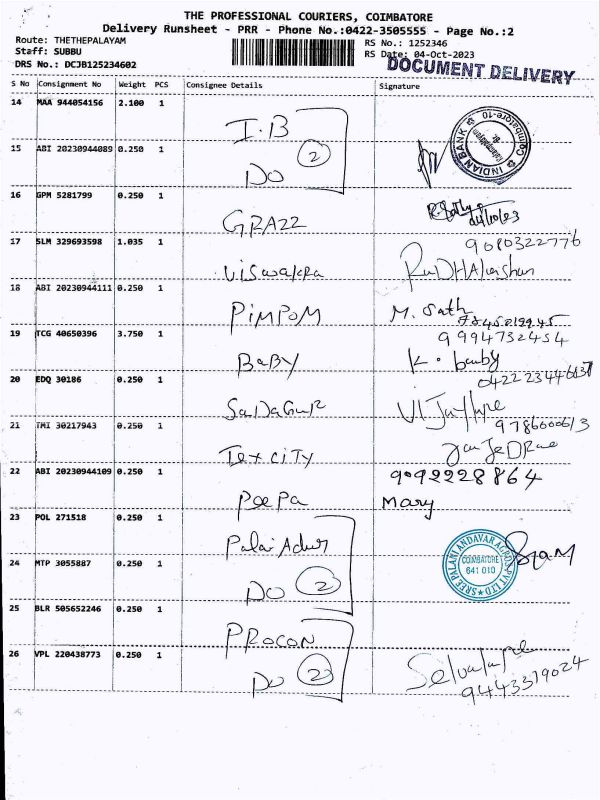 THE PROFESSIONAL COURIERS, COIMBATORE
Delivery Runsheet - PRR - Phone No.:0422-3505555 - Page No.:2
Route: THETHEPALAYAM
Staff: SUBBU
DRS No.: DCJB125234602
RS No.: 1252346
RS Date: 04-Oct-2023
DOCUMENT DELIVERY
S No Consignment No Weight PCS Consignee Details Signature
14 MAA 944054156 2.100 1 I.B
INDIAN BANK
15 ABI 20230944089 0.250 1 DO 2
16 GPM 5281799 0.250 1 GRAZZ
17 SLM 329693598 1.035 1 Viswakra
9080322776
18 ABI 20230944111 0.250 1 PIMPOM M. Sath
19 TCG 40650396 3.750 1 BABY
9994732454
20 EDQ 30186 0.250 1 SaDaGur
21 TMI 30217943 0.250 1 Tex CiTY
22 ABI 20230944109 0.250 1 PeePa Mary
9092228864
23 POL 271518 0.250 1 Palai Adur
SREE PALANI ANDAVAR AGRO PVT LTD
COIMBATORE
641 010
24 MTP 3055887 0.250 1 DO 2
25 BLR 505652246 0.250 1 PROCON
26 VPL 220438773 0.250 1 DO 2
9443379024